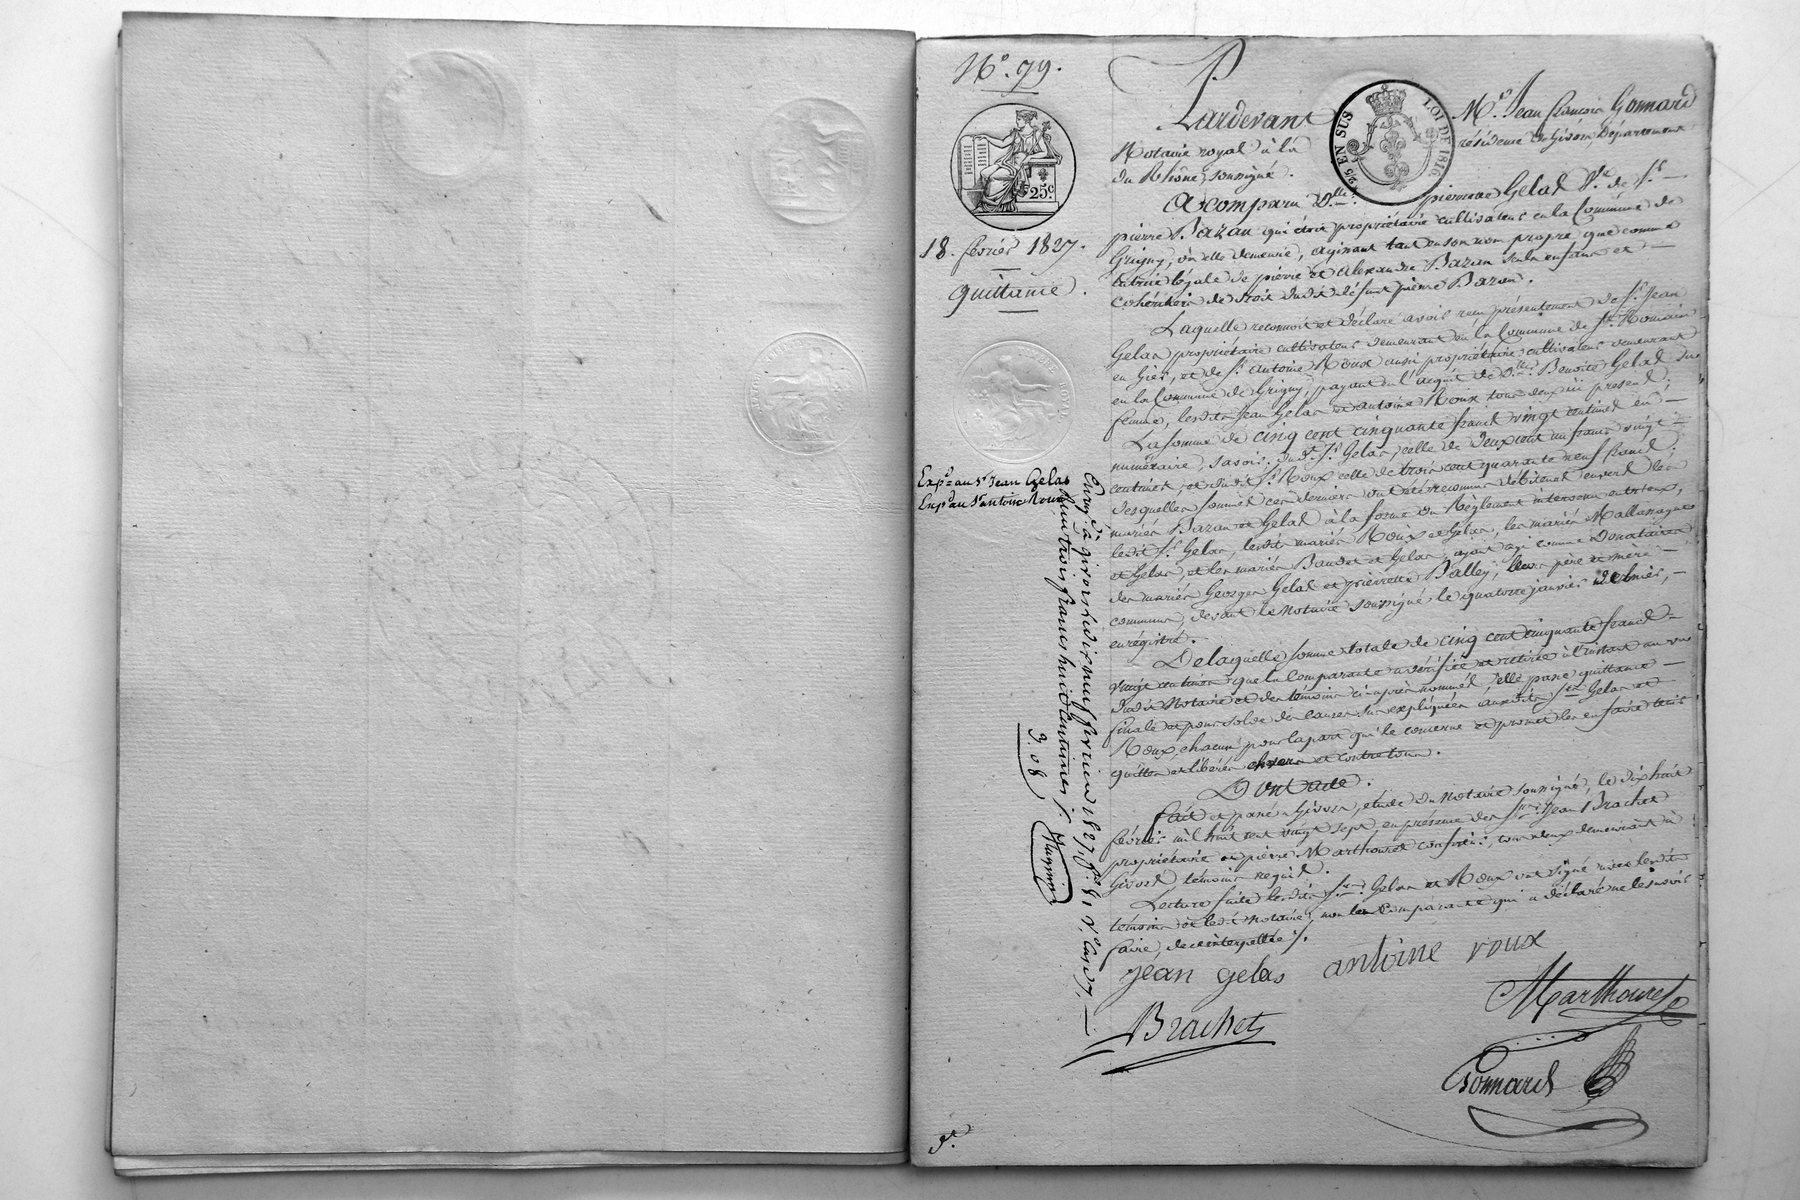 N.° 79.
25c.
18. février 1827.
quittance.
Exp.on au S.r Jean Gelas
Exp.on au S.r antoine Roux
Enreg.é à givors le dix neuf fevrier 1827, f.° 81 v.° Case 7,
trois francs huit centimes ./.
3.08
Pardevant M.e Jean françois Gonnard
25 EN SUS
LOI DE 1816
Notaire royal à la résidence de Givors, Département
du Rhône, soussigné.
A comparu D.lle pierrine Gelas V.e de S.r
pierre Bazan qui étoit propriétaire cultivateur en la Commune de
Grigny, où elle demeure, agissant tant en son nom propre que comme
tutrice légale de pierre et alexandre Bazan seuls enfans et
cohéritiers de droit dudit défunt pierre Bazan.
Laquelle reconnoit et déclare avoir reçu présentement de S.r Jean
Gelas propriétaire cultivateur demeurant en la Commune de S.t Romain
en Gier, et de S.r antoine Roux aussi propriétaire cultivateur demeurant
en la Commune de Grigny, payant en l'acquit de D.lle Benoite Gelas sa
femme, lesdits Jean Gelas et antoine Roux tous deux ici présens;
La somme de cinq cent cinquante francs vingt centimes en
numéraire, savoir: dudit S.r Gelas, celle de deux cent un francs vingt
centimes, et dudit S.r Roux celle de trois cent quarante neuf francs;
desquelles sommes ces derniers ont été reconnus débiteurs envers les
mariés Bazan et Gelas à la forme du Règlement intervenu entr'eux,
ledit S.r Gelas, lesdits mariés Roux et Gelas, les mariés
et Gelas, et les mariés Baudet et Gelas, ayant agi comme Donataires
des mariés Georges Gelas et pierrette Balley, leurs père et mère
communs, devant le Notaire soussigné le quatorze janvier dernier,
enregistré.
De laquelle somme totale de cinq cent cinquante francs
vingt centimes que la Comparante a vérifiée et retirée à l'instant au vu
dudit Notaire et des témoins ci-après nommés, elle passe quittance
finale et pour solde des causes sus expliquées auxdits S.rs Gelas et
Roux, chacun pour la part qui le concerne et promet les en faire tenir
quittes et libérés envers et contre tous.
Dont acte.
fait et passé à Givors, étude du notaire soussigné, le dix huit
février mil huit cent vingt sept, en présence des S.rs Jean Brachet
propriétaire et pierre Marthouret confiseur, tous deux demeurant à
Givors, témoins requis.
Lecture faite lesdits S.rs Gelas et Roux ont signé avec lesdits
témoins et ledit notaire, non la Comparante qui a déclaré ne le savoir
faire, de ce interpellée ./.
jean gelas antoine roux
Marthouret
Brachet
Gonnard